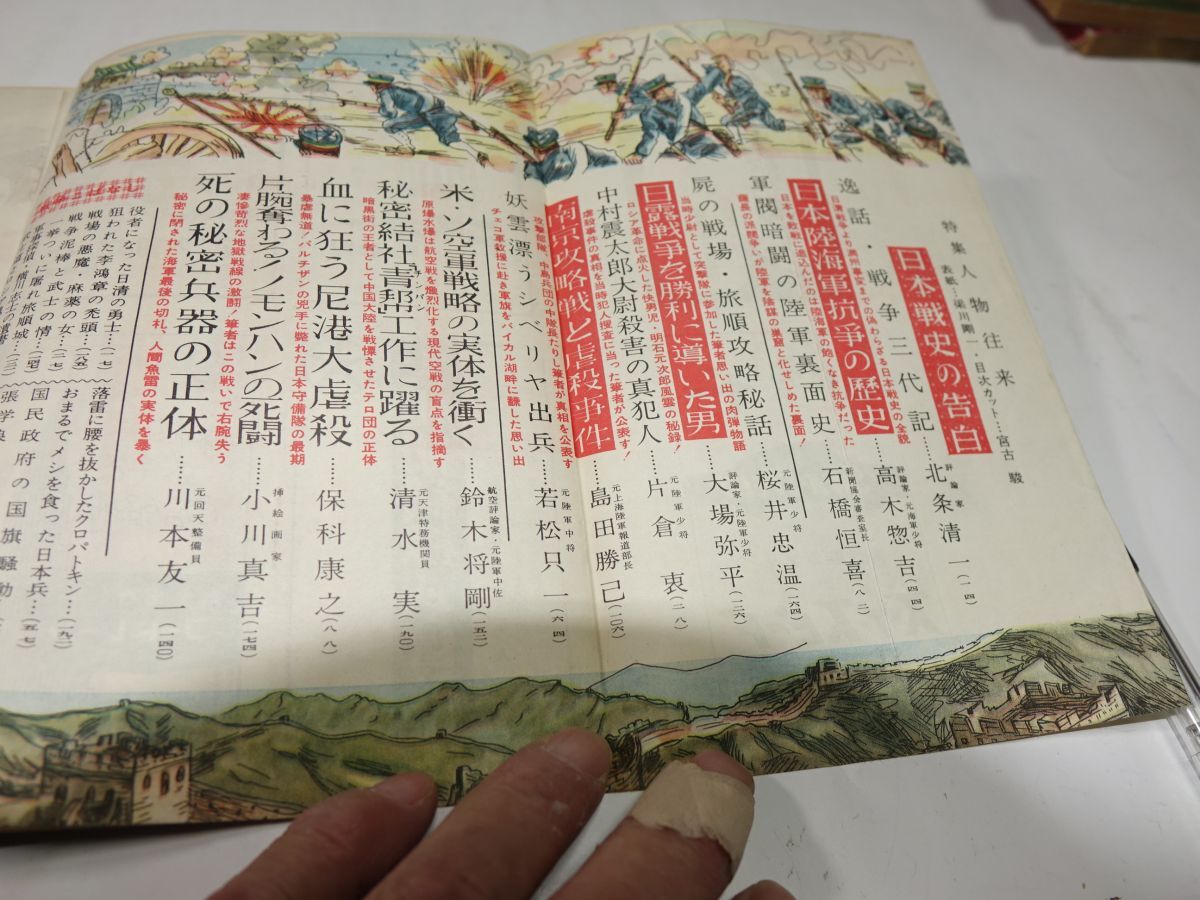 特集人物往来
表紙・梁川剛一・目次カット……宮古 駿
日本戦史の告白……評論家 北条清一(一四)
逸話・戦争三代記……評論家・元海軍少将 高木惣吉(四四)
日清戦争より満州事変までの味わらざる日本戦史の全貌
日本陸海軍抗争の歴史……新聞協会審査室長 石橋恒喜(八二)
日本を敗戦に追込んだのは陸海軍の飽くなき抗争だった
軍閥暗闘の陸軍裏面史
藩長の派閥争いが陸軍を陰謀の巣窟と化せしめた裏面!
屍の戦場・旅順攻略秘話……元陸軍少将 桜井忠温(一六四)
当時少尉として突撃隊に参加した筆者思い出の肉弾物語
日露戦争を勝利に導いた男……評論家・元陸軍少将 大場弥平(一二六)
ロシア革命に点火した快男児・明石元次郎風雲の秘録!
中村震太郎大尉殺害の真犯人……元陸軍少将 片倉 衷(二八)
虐殺事件の真相を当時犯人捜査に当った筆者が公表す!
南京攻略戦と虐殺事件……元上海陸軍報道部長 島田勝己(一〇六)
攻撃部隊、中島兵団の中隊長たりし筆者が真相を公表す
妖雲漂うシベリヤ出兵……元陸軍中将 若松只一(六四)
チェコ軍救援に赴き軍旗をバイカル湖畔に飜した思い出
米・ソ空軍戦略の実体を衝く……航空評論家・元陸軍中佐 鈴木将剛(一五二)
原爆水爆は航空戦を熾烈化する現代空戦の盲点を指摘す
秘密結社「青邦」工作に躍る……元天津特務機関員 清水 実(一九〇)
チンパン
暗黒街の王者として中国大陸を戦慄させたテロ団の正体
血に狂う尼港大虐殺……保科康之(八八)
暴虐無道!パルチザンの兇手に斃れた日本守備隊の最期
片腕奪わる!ノモンハンの死闘……挿絵画家 小川真吉(一七四)
凄愴苛烈な地獄戦線の激闘!筆者はこの戦いで右腕失う
死の秘密兵器の正体……元回天整備員 川本友一(一四〇)
秘密に閉された海軍最後の切札、人間魚雷の実体を暴く
はなし
役者になった日清の勇士…(一七)
狙われた李鴻章の禿頭…(六五)
戦場の悪魔・麻薬の女…(三一)
戦争泥棒と武士の情…(三七)
一夢ついに濡れ旅順城…(一四七)
落雷に腰を抜かしたクロパトキン…(一九一)
おまるでメシを食った日本兵…(五七)
国民政府の国旗騒動
張学良